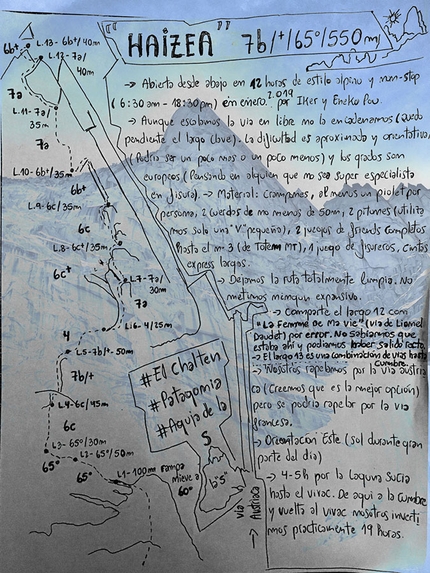 "HAIZEA" 7b/+/65°/550m
→ Abierta desde abajo en 12 horas de estilo alpino y non-stop
(6:30am - 18:30pm) en enero. 2019 por Iker y Eneko Pou.
→ Aunque escalamos la via en libre no la encadenamos (quedo
pendiente el largo clave). La dificultad es aproximada y orientativa,
(Podria ser un poco mas o un poco menos) y los grados son
europeos (Pensando en alguien que no sea super especialista
en fisura). → Material: Crampones, al menos un piolet por
persona, 2 cuerdas de no menos de 50m, 2 pitones (utiliza
mos solo una "V" pequeño), 2 juegos de friends completos
hasta el nº 3 (de Totem MT), 1 juego de fisureros. Cintas
express largos.
→ Dejamos la ruta totalmente limpia. No
metimos ningun expansivo.
→ Comparte el largo 12 con
"La Femme de Ma Vie" (via de Lionel
Daudet) por error. No Sabiamos que
estaba ahi y podiamos haber salido recto.
→ El largo 13 es una combinación de vias hasta
cumbre.
→ Nosotros rapelamos por la via austria
ca (Creemos que es la mejor opción)
pero se podria rapelar por la via
francesa.
→ Orientación Este (sol durante gran
parte del dia)
→ 4-5h por la Laguna Sucia
hasta el vivac. De aqui a la cumbre
y vuelta al vivac nosotros inverti
mos practicamente 19 horas.
6b+
L.13- 6b+/40m
L.12- 7a/
40m
7a
L.11- 7a/
35m
7a
L.10- 6b+/35m
6b+
L.9- 6c/35m
6c
L.8- 6c+/35m
6c+
L7- 7a/
30m
7a
L.6- 4/25m
4
L.5- 7b/+- 50m
7b/+
L.4- 6c/45m
6c
L3- 65°/30m
65°
L2- 65°/50m
65°
L1- 100m rampa
nieve a
60°
#El Chalten
#Patagonia
#Aguja de la
S
b"5"
via
Austriaca